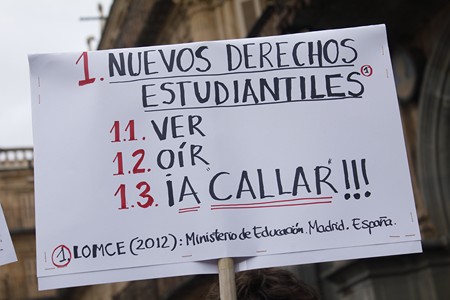 1. NUEVOS DERECHOS
ESTUDIANTILES①
1.1. VER
1.2. OÍR
1.3. ¡A "CALLAR"!!!
① LOMCE (2012): Ministerio de Educación. Madrid. España.